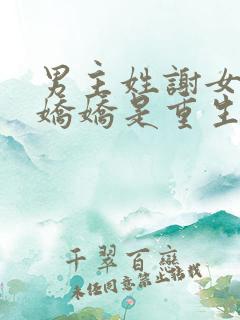 男主姓謝女
嬌嬌是重生
千翠百戀
未经同意禁止转载